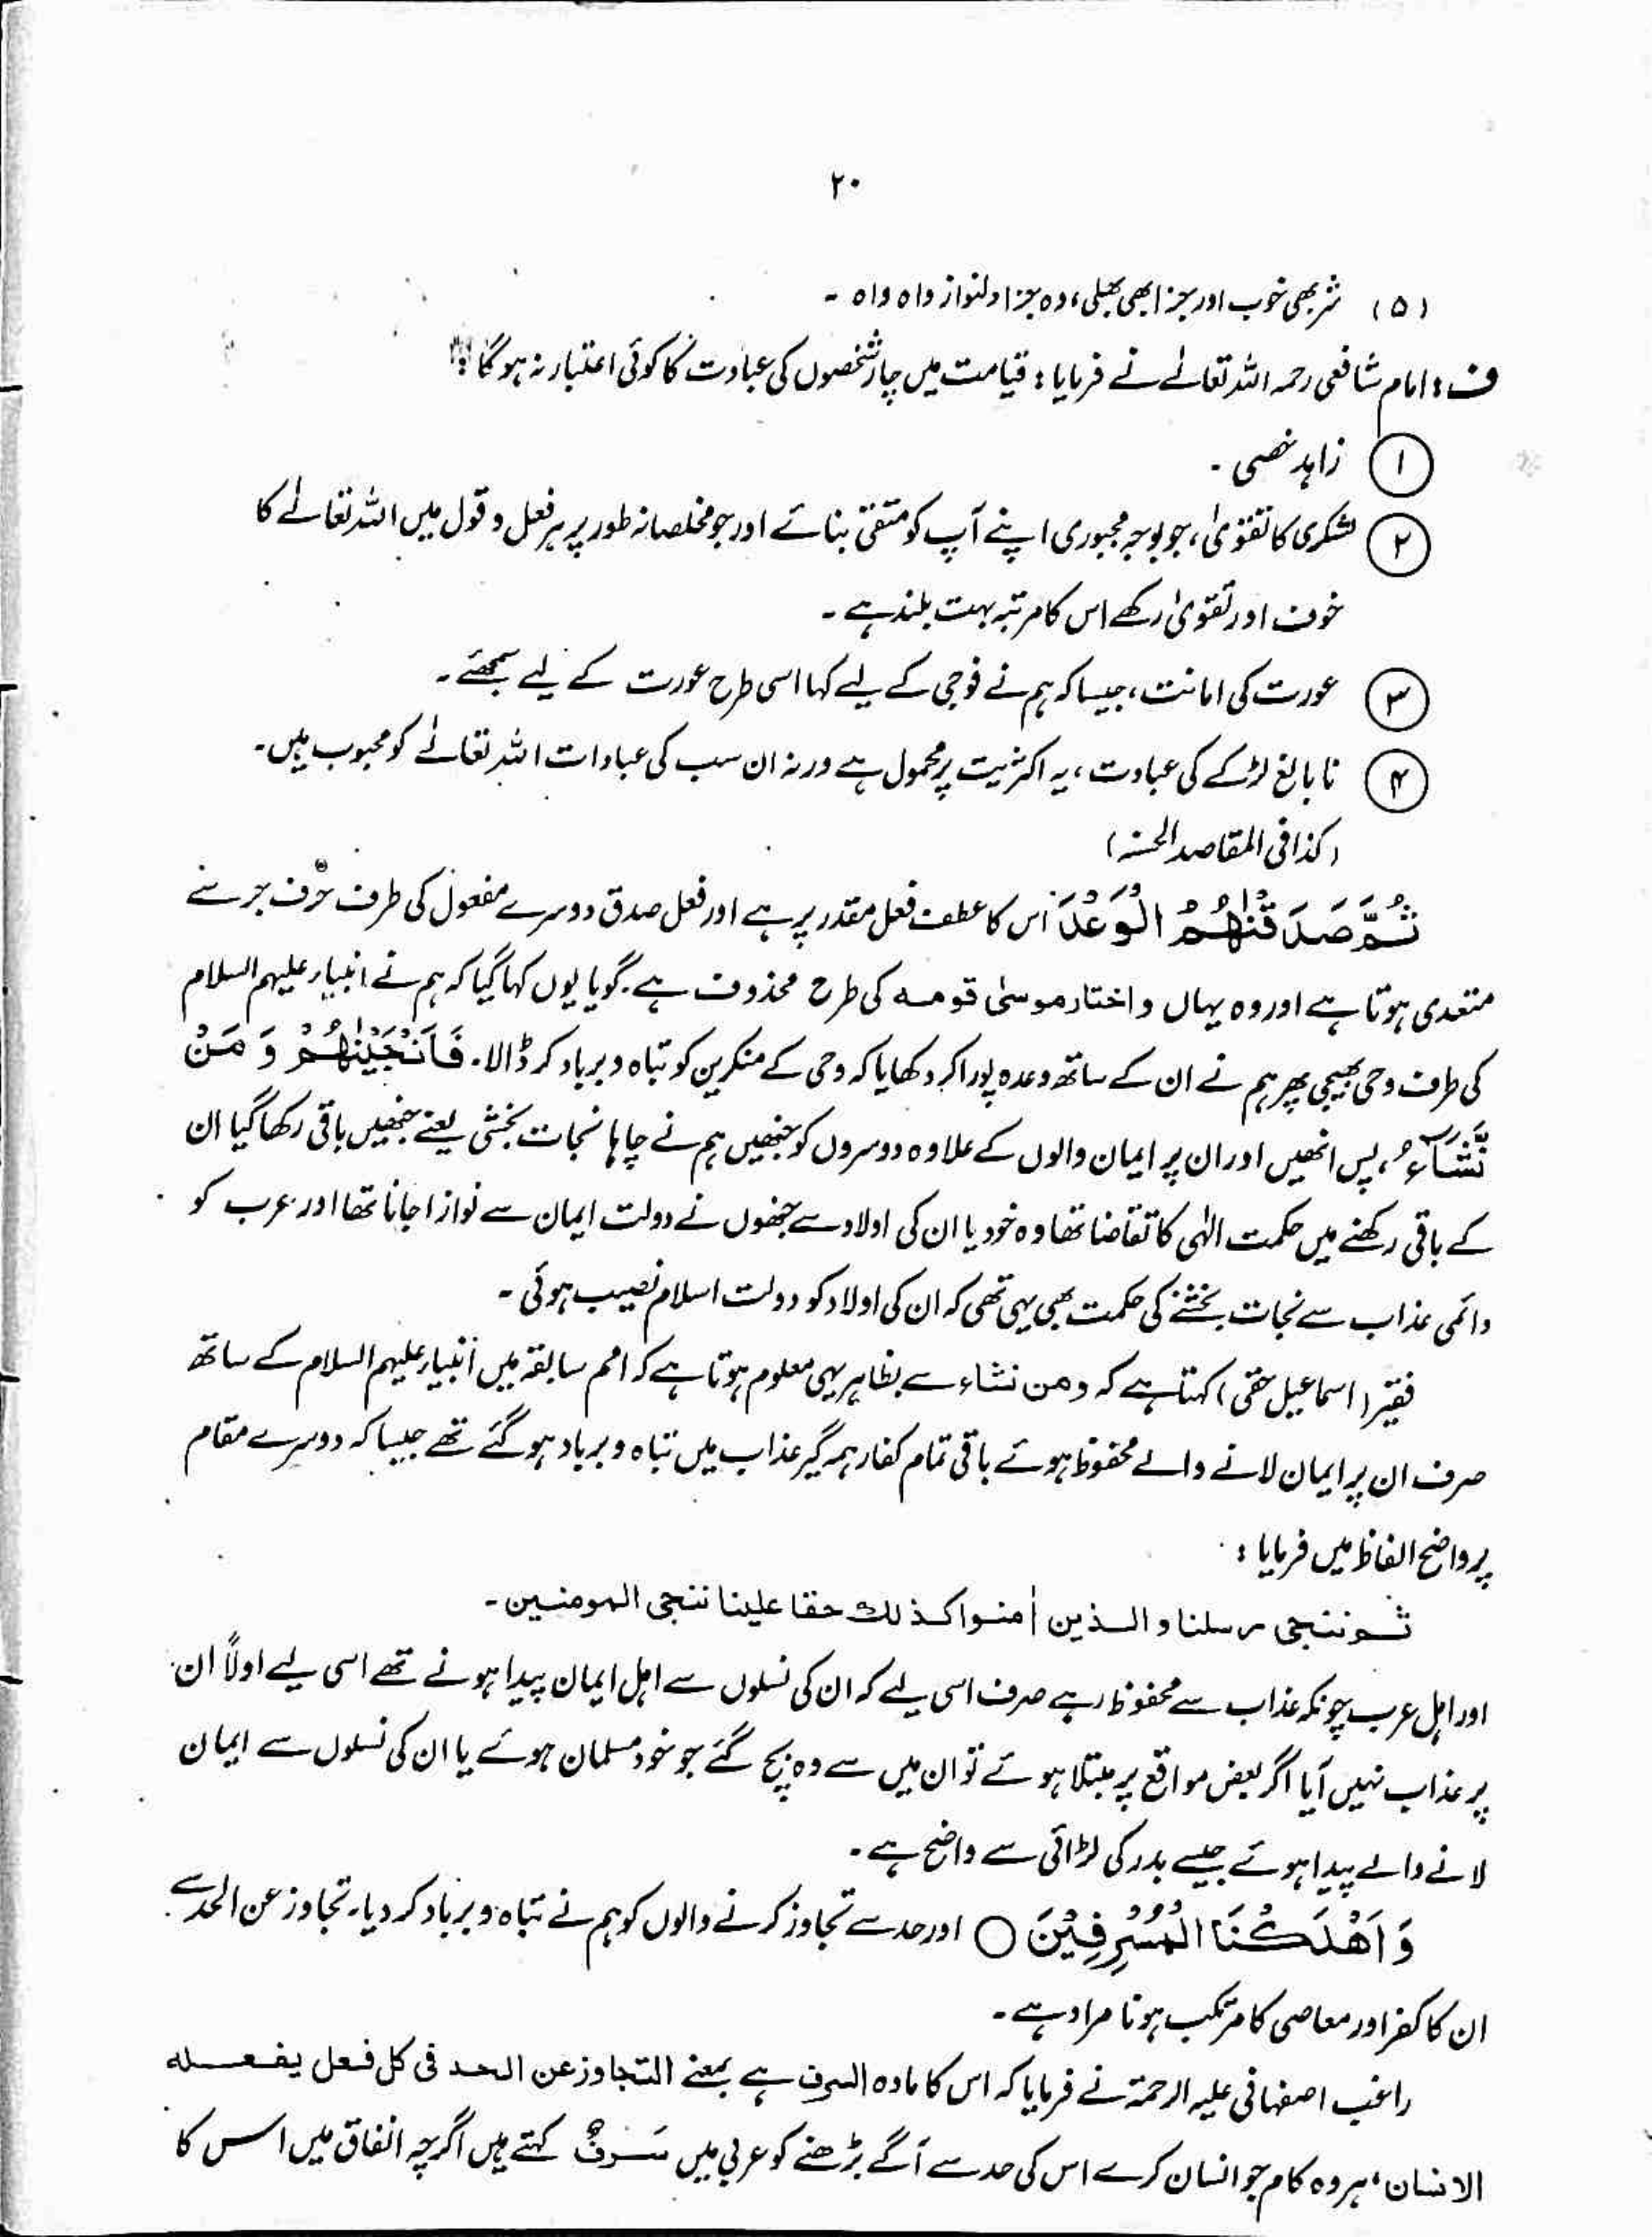 ۲۰
(۵) ثمر بھی خوب اور جزا بھی بھلی، وہ جزا دلنواز واہ واہ ۔
ف : امام شافعی رحمہ اللہ تعالےٰ نے فرمایا : قیامت میں چار شخصوں کی عبادت کا کوئی اعتبار نہ ہوگا :
۱ زاہد خصی ۔
۲ لشکری کا تقویٰ، جو بوجہ مجبوری اپنے آپ کو متقی بنائے اور جو مخلصانہ طور پر ہر فعل و قول میں اللہ تعالےٰ کا
خوف اور تقویٰ رکھے اس کا مرتبہ بہت بلند ہے ۔
۳ عورت کی امانت، جیسا کہ ہم نے فوجی کے لیے کہا اسی طرح عورت کے لیے سمجھئے ۔
۴ نابالغ لڑکے کی عبادت، یہ اکثریت پر محمول ہے ورنہ ان سب کی عبادات اللہ تعالےٰ کو محبوب ہیں۔
(کذا فی المقاصد الحسنہ)
ثُمَّ صَدَقْنٰهُمُ الْوَعْدَ اس کا عطف فعل مقدر پر ہے اور فعل صدق دوسرے مفعول کی طرف حرف جر سے
متعدی ہوتا ہے اور وہ یہاں واختار موسیٰ قومہ کی طرح محذوف ہے۔ گویا یوں کہا گیا کہ ہم نے انبیاء علیہم السلام
کی طرف وحی بھیجی پھر ہم نے ان کے ساتھ وعدہ پورا کر دکھایا کہ وحی کے منکرین کو تباہ و برباد کر ڈالا۔ فَاَنْجَیْنٰهُمْ وَ مَنْ
نَّشَآءُ، پس انھیں اور ان پر ایمان والوں کے علاوہ دوسروں کو جنھیں ہم نے چاہا نجات بخشی یعنے جنھیں باقی رکھا گیا ان
کے باقی رکھنے میں حکمت الٰہی کا تقاضا تھا وہ خود یا ان کی اولاد سے جنھوں نے دولت ایمان سے نوازا جانا تھا اور عرب کو
دائمی عذاب سے نجات بخشنے کی حکمت بھی یہی تھی کہ ان کی اولاد کو دولت اسلام نصیب ہوئی ۔
فقیر (اسماعیل حقی) کہتا ہے کہ ومن نشاء سے بظاہر یہی معلوم ہوتا ہے کہ امم سابقہ میں انبیاء علیہم السلام کے ساتھ
صرف ان پر ایمان لانے والے محفوظ ہوئے باقی تمام کفار ہمہ گیر عذاب میں تباہ و برباد ہو گئے تھے جیسا کہ دوسرے مقام
پر واضح الفاظ میں فرمایا :
ثم ننجی رسلنا والذین اٰمنوا کذلك حقا علینا ننجی المومنین ۔
اور اہل عرب چونکہ عذاب سے محفوظ رہے صرف اسی لیے کہ ان کی نسلوں سے اہل ایمان پیدا ہونے تھے اسی لیے اولاً ان
پر عذاب نہیں آیا اگر بعض مواقع پر مبتلا ہوئے تو ان میں سے وہ بچ گئے جو خود مسلمان ہوئے یا ان کی نسلوں سے ایمان
لانے والے پیدا ہوئے جیسے بدر کی لڑائی سے واضح ہے ۔
وَ اَهْلَكْنَا الْمُسْرِفِیْنَ ○ اور حد سے تجاوز کرنے والوں کو ہم نے تباہ و برباد کر دیا۔ تجاوز عن الحد سے
ان کا کفر اور معاصی کا مرتکب ہونا مراد ہے ۔
راغب اصفہانی علیہ الرحمۃ نے فرمایا کہ اس کا مادہ السرف ہے بمعنے التجاوز عن الحد فی کل فعل یفعلہ
الانسان، ہر وہ کام جو انسان کرے اس کی حد سے آگے بڑھنے کو عربی میں سَرَفٌ کہتے ہیں اگرچہ انفاق میں اس کا